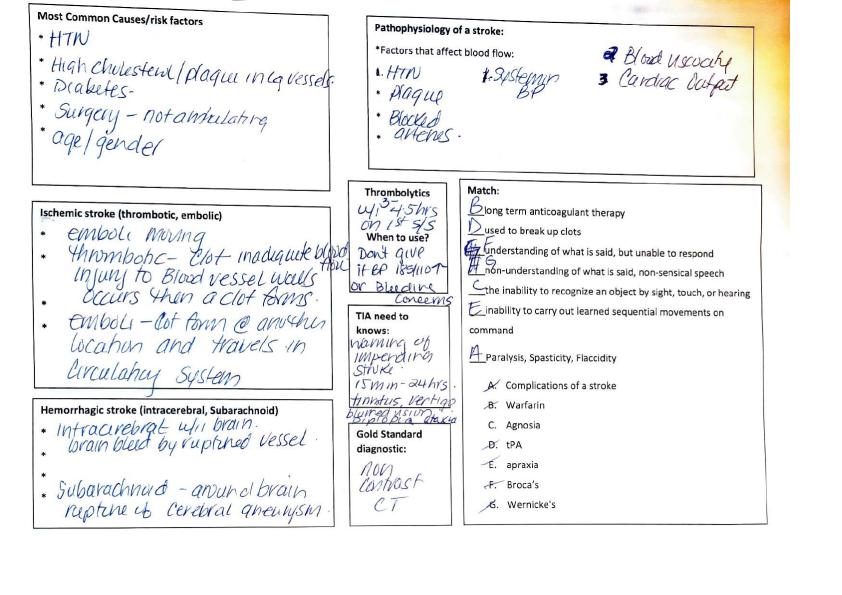 Most Common Causes/risk factors
• HTN
• High Cholesterol/plaque in lg vessels.
• Diabetes-
• Surgery - not ambulating
• age/gender
Pathophysiology of a stroke:
*Factors that affect blood flow:
1. HTN
• Plaque
• Blocked
• arteries.
1. Systemic
BP
2 Blood viscocity
3 Cardiac Output
Ischemic stroke (thrombotic, embolic)
• emboli moving
• thrombotic - clot inadiquite blood
flow
injury to Blood vessel walls
• occurs then a clot forms.
• emboli - clot form @ another
location and travels in
circulatory system
Hemorrhagic stroke (intracerebral, Subarachnoid)
• Intracerebral w/i brain.
brain bleed by ruptured vessel.
• Subarachnoid - around brain
rupture of cerebral aneurysm.
Thrombolytics
w/i 3-4.5hrs
on 1st s/s
When to use?
Don't give
if BP 185/110↑
or Bleeding
Concerns
TIA need to
knows:
warning of
impending
stroke.
15 min - 24 hrs.
tinnitus, vertigo
blurred vision,
Diplopia ataxia
Gold Standard
diagnostic:
non
contrast
CT
Match:
B long term anticoagulant therapy
D used to break up clots
F understanding of what is said, but unable to respond
G non-understanding of what is said, non-sensical speech
C the inability to recognize an object by sight, touch, or hearing
E inability to carry out learned sequential movements on
command
A Paralysis, Spasticity, Flaccidity
A. Complications of a stroke
B. Warfarin
C. Agnosia
D. tPA
E. apraxia
F. Broca's
G. Wernicke's